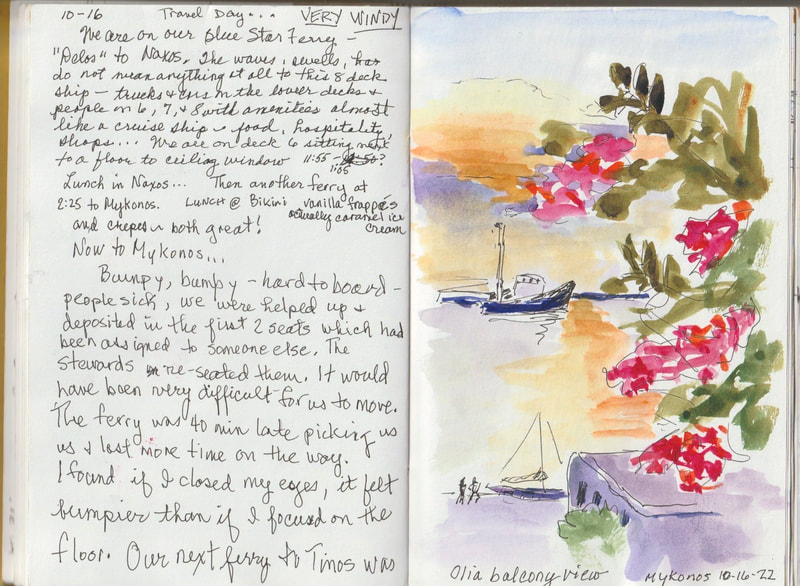 10-16 Travel Day... VERY WINDY
We are on our Blue Star Ferry -
"Delos" to Naxos. The waves, swells,
do not mean anything at all to this 8 deck
ship - trucks & cars on the lower decks &
people on 6, 7, & 8 with amenities almost
like a cruise ship - food, hospitality,
shops... We are on deck 6 sitting next
to a floor to ceiling window 11:55 ?
1:05
Lunch in Naxos... Then another ferry at
2:25 to Mykonos. LUNCH @ Bikini vanilla frappés
actually caramel ice
and crepes - both great! cream
Now to Mykonos...
Bumpy, bumpy - hard to board -
people sick, we were helped up &
deposited in the first 2 seats which had
been assigned to someone else. The
stewards re-seated them. It would
have been very difficult for us to move.
The ferry was 40 min late picking us
us & lost more time on the way.
I found if I closed my eyes, it felt
bumpier than if I focused on the
floor. Our next ferry to Tinos was
Olia balcony view Mykonos 10-16-22